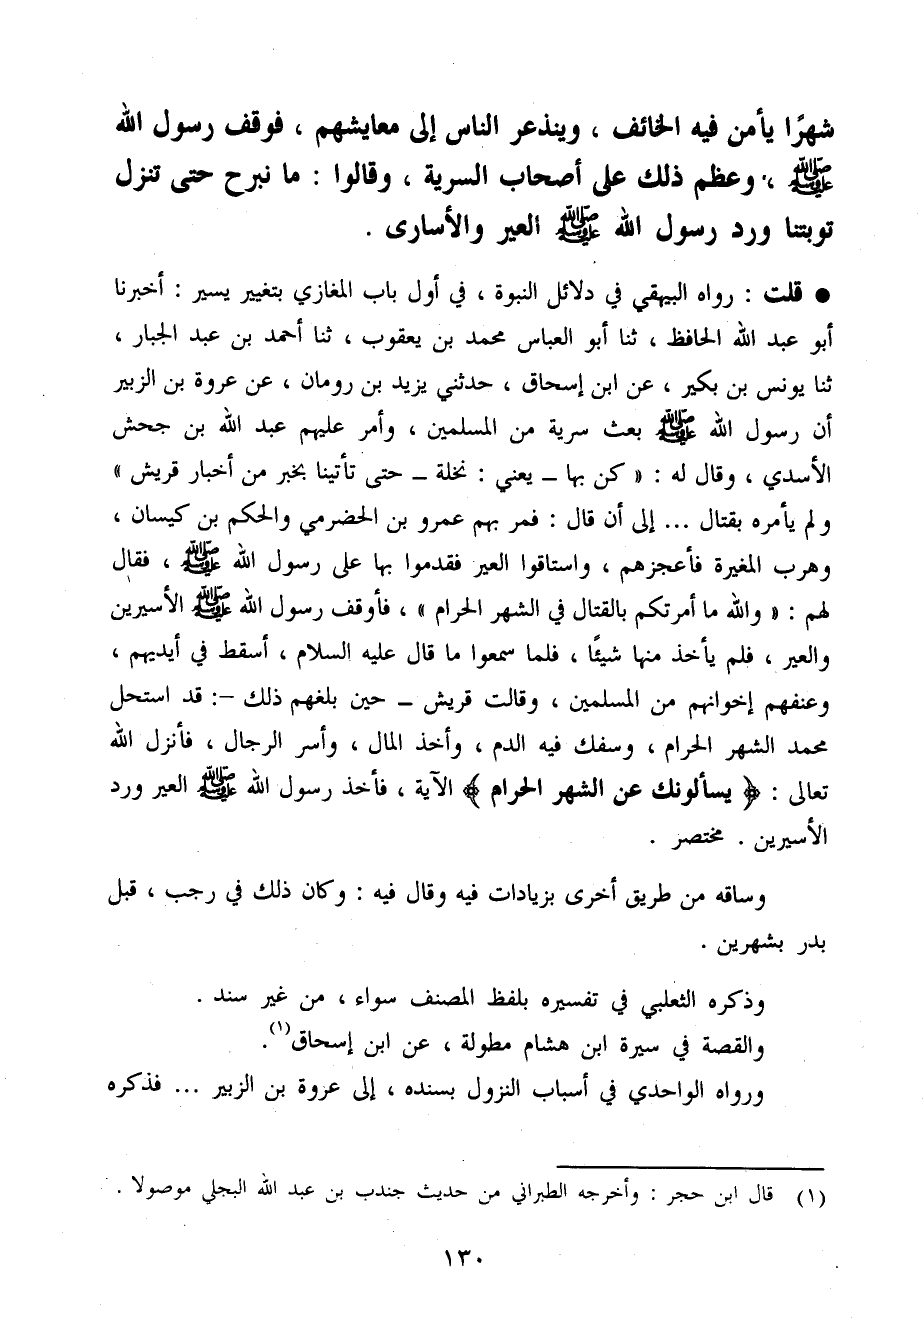 شهرًا يأمن فيه الخائف ، وينذعر الناس إلى معايشهم ، فوقف رسول الله
ﷺ ، وعظم ذلك على أصحاب السرية ، وقالوا : ما نبرح حتى تنزل
توبتنا ورد رسول الله ﷺ العير والأسارى .
● قلت : رواه البيهقي في دلائل النبوة ، في أول باب المغازي بتغيير يسير : أخبرنا
أبو عبد الله الحافظ ، ثنا أبو العباس محمد بن يعقوب ، ثنا أحمد بن عبد الجبار ،
ثنا يونس بن بكير ، عن ابن إسحاق ، حدثني يزيد بن رومان ، عن عروة بن الزبير
أن رسول الله ﷺ بعث سرية من المسلمين ، وأمر عليهم عبد الله بن جحش
الأسدي ، وقال له : « كن بها ــ يعني : نخلة ــ حتى تأتينا بخبر من أخبار قريش »
ولم يأمره بقتال ... إلى أن قال : فمر بهم عمرو بن الحضرمي والحكم بن كيسان ،
وهرب المغيرة فأعجزهم ، واستاقوا العير فقدموا بها على رسول الله ﷺ ، فقال
لهم : « والله ما أمرتكم بالقتال في الشهر الحرام » ، فأوقف رسول الله ﷺ الأسيرين
والعير ، فلم يأخذ منها شيئًا ، فلما سمعوا ما قال عليه السلام ، أسقط في أيديهم ،
وعنفهم إخوانهم من المسلمين ، وقالت قريش ــ حين بلغهم ذلك ــ: قد استحل
محمد الشهر الحرام ، وسفك فيه الدم ، وأخذ المال ، وأسر الرجال ، فأنزل الله
تعالى : ﴿ يسألونك عن الشهر الحرام ﴾ الآية ، فأخذ رسول الله ﷺ العير ورد
الأسيرين . مختصر .
وساقه من طريق أخرى بزيادات فيه وقال فيه : وكان ذلك في رجب ، قبل
بدر بشهرين .
وذكره الثعلبي في تفسيره بلفظ المصنف سواء ، من غير سند .
والقصة في سيرة ابن هشام مطولة ، عن ابن إسحاق(١).
ورواه الواحدي في أسباب النزول بسنده ، إلى عروة بن الزبير ... فذكره
(١) قال ابن حجر : وأخرجه الطبراني من حديث جندب بن عبد الله البجلي موصولا .
١٣٠